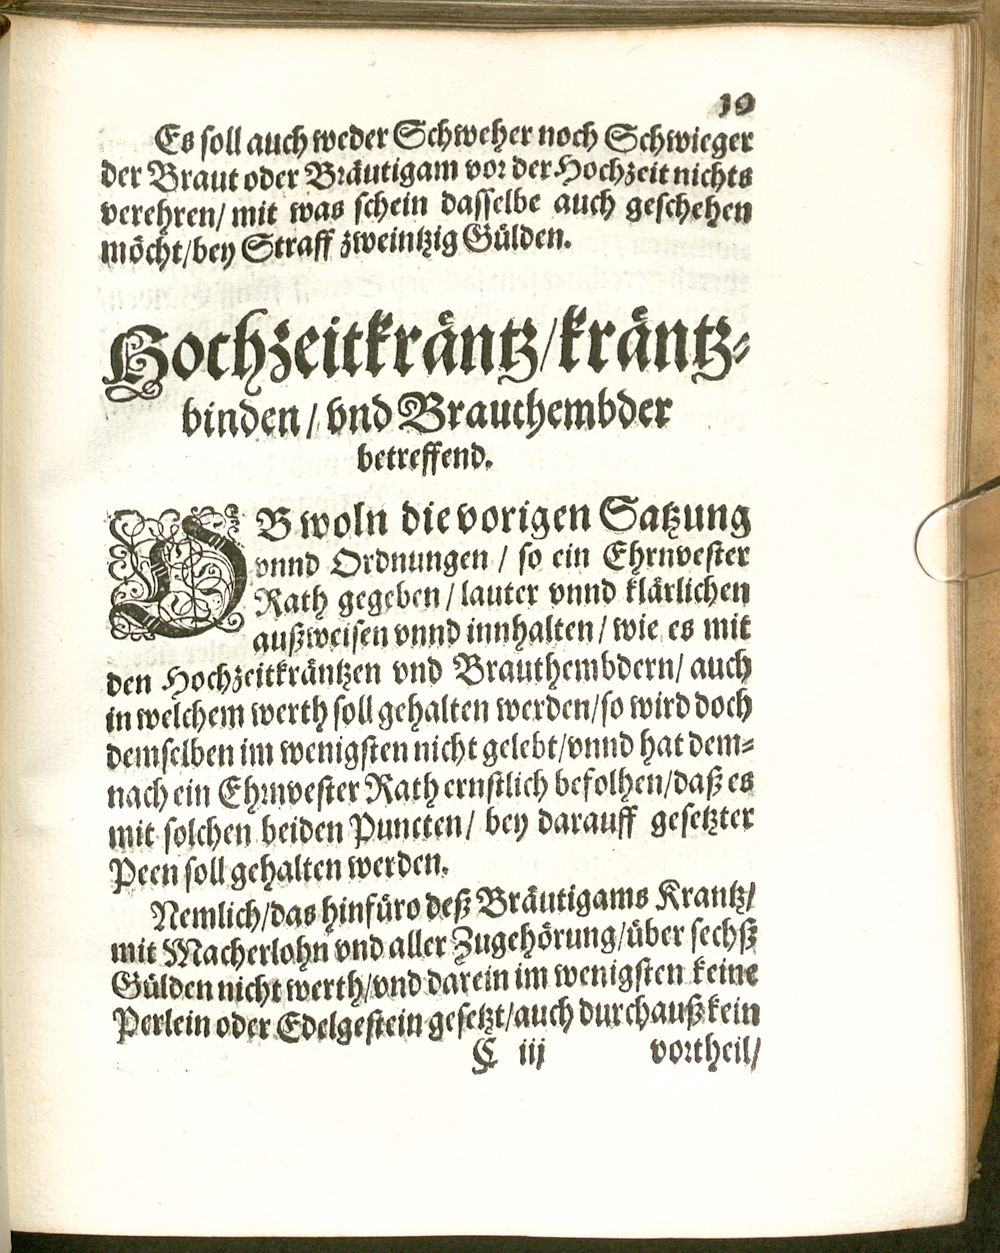 10
Es soll auch weder Schweher noch Schwieger
der Braut oder Bräutigam vor der Hochzeit nichts
verehren/ mit was schein dasselbe auch geschehen
möcht/bey Straff zweintzig Gülden.
Hochzeitkräntz/kräntz-
binden/ vnd Brauthembder
betreffend.
OB woln die vorigen Satzung
vnnd Ordnungen / so ein Ehrnvester
Rath gegeben/ lauter vnnd klärlichen
außweisen vnnd innhalten/ wie es mit
den Hochzeitkräntzen vnd Brauthembdern/ auch
in welchem werth soll gehalten werden/so wird doch
demselben im wenigsten nicht gelebt/vnnd hat dem-
nach ein Ehrnvester Rath ernstlich befolhen/daß es
mit solchen beiden Puncten/ bey darauff gesetzter
Peen soll gehalten werden.
Nemlich/das hinfüro deß Bräutigams Krantz/
mit Macherlohn vnd aller Zugehörung/über sechß
Gülden nicht werth/vnd darein im wenigsten keine
Perlein oder Edelgestein gesetzt/auch durchauß kein
C iij vortheil/